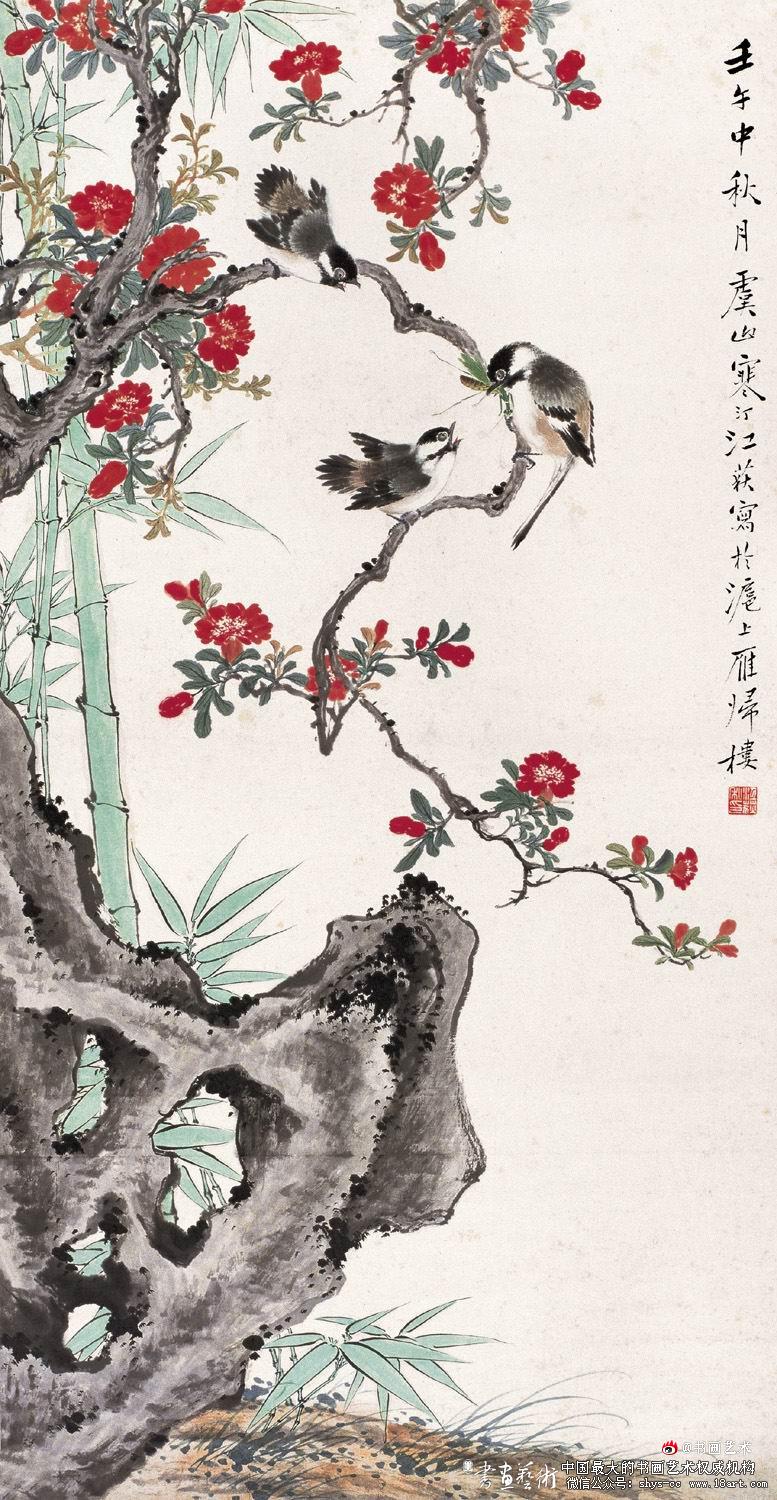 壬午中秋月虞山寒汀江荻寫於滬上雁歸樓
@书画艺术
書画藝術
中国最大的书画艺术权威机构
微信公众号：shys-cc www.18art.com